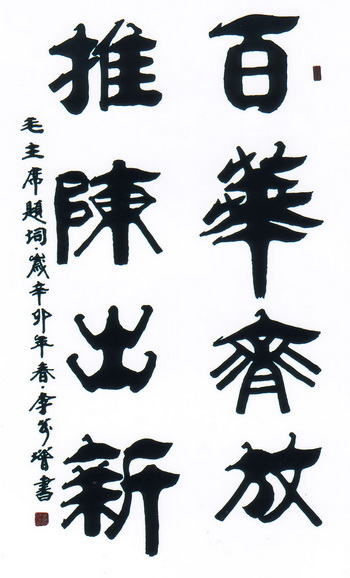 百華齊放
推陳出新
毛主席題詞·歲辛卯年春·李
書